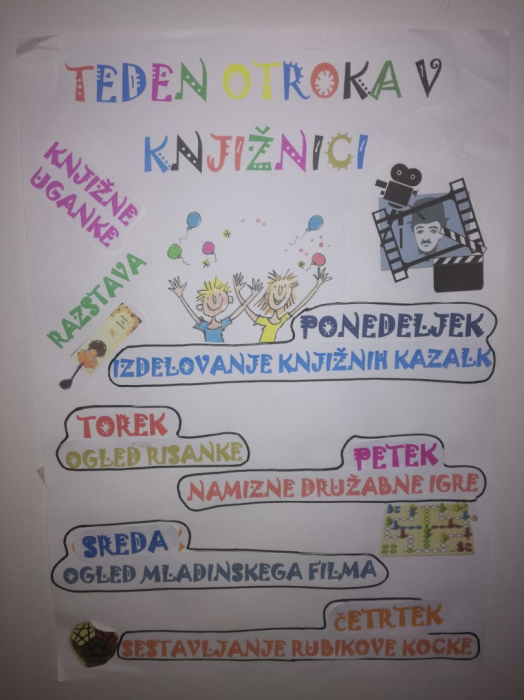 TEDEN OTROKA V
KNJIŽNICI
KNJIŽNE
UGANKE
RAZSTAVA
PONEDELJEK
IZDELOVANJE KNJIŽNIH KAZALK
TOREK
OGLED RISANKE
PETEK
NAMIZNE DRUŽABNE IGRE
SREDA
OGLED MLADINSKEGA FILMA
ČETRTEK
SESTAVLJANJE RUBIKOVE KOCKE